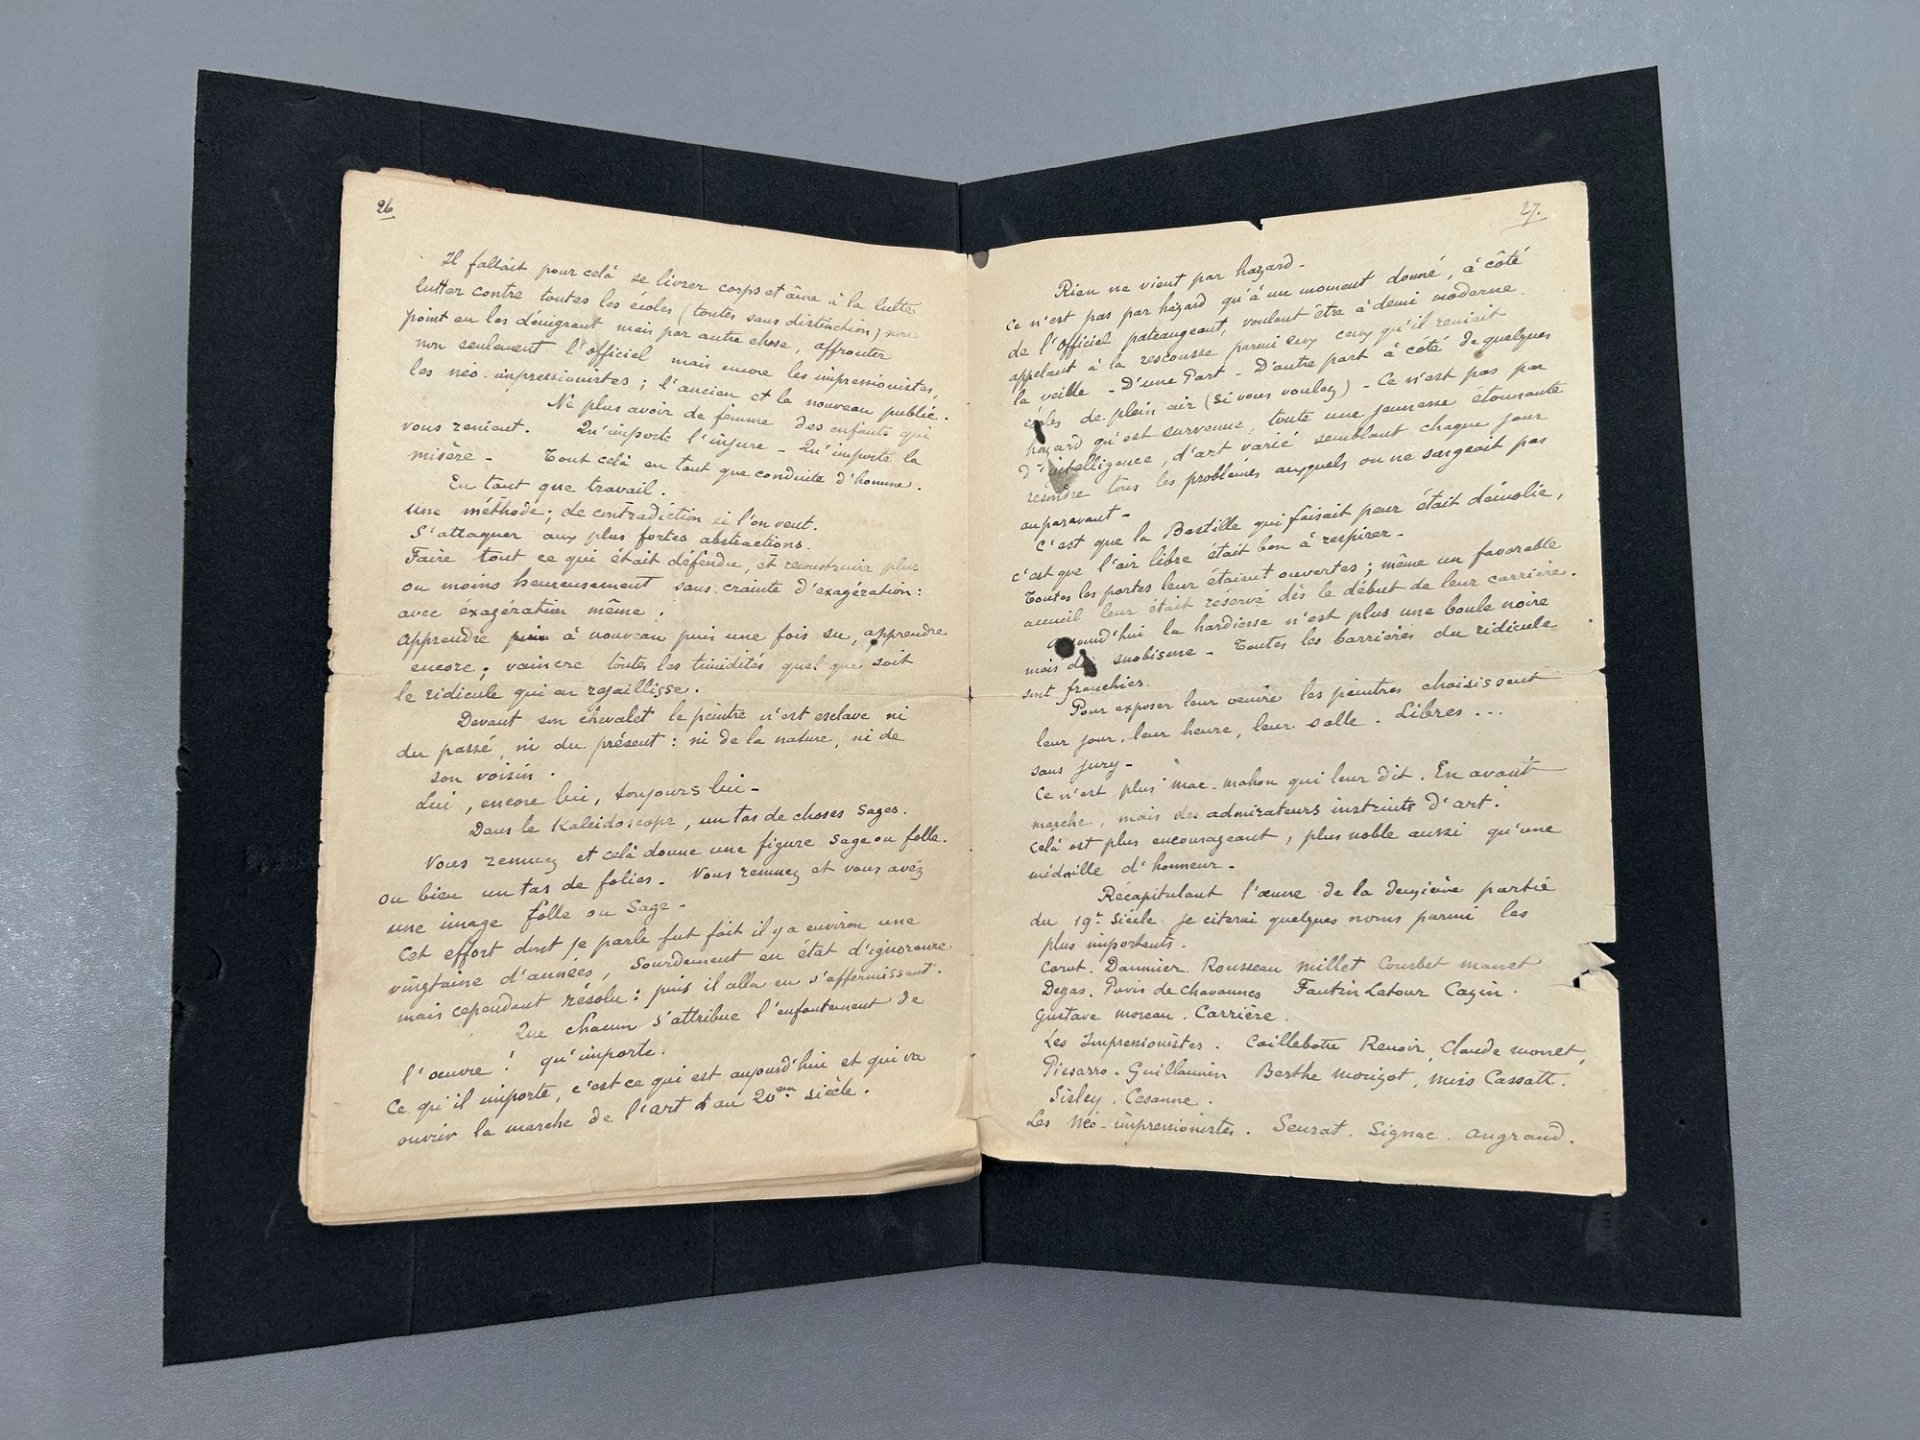 26
Il fallait pour celà se livrer corps et âme à la lutte
lutter contre toutes les écoles (toutes sans distinction) non
point en les dénigrant mais par autre chose, affronter
non seulement l'officiel mais encore les impressionistes,
les néo-impressionistes; l'ancien et le nouveau public.
Ne plus avoir de femme des enfants qui
vous renient. Qu'importe l'injure - Qu'importe la
misère - Tout celà en tant que conduite d'homme.
En tant que travail.
une méthode; de contradiction si l'on veut.
S'attaquer aux plus fortes abstractions.
Faire tout ce qui était défendu, et reconstruire plus
ou moins heureusement sans crainte d'exagération:
avec exagération même.
apprendre à nouveau puis une fois su, apprendre
encore; vaincre toutes les timidités quel que soit
le ridicule qui en rejaillisse.
Devant son chevalet le peintre n'est esclave ni
du passé, ni du présent: ni de la nature, ni de
son voisin.
Lui, encore lui, toujours lui -
Dans le Kaleidoscope, un tas de choses sages.
Vous remuez et celà donne une figure sage ou folle.
ou bien un tas de folies. Vous remuez et vous avez
une image folle ou sage -
Cet effort dont je parle fut fait il y a environ une
vingtaine d'années, sourdement en état d'ignorance
mais cependant résolu: puis il alla en s'affermissant.
Que chacun s'attribue l'enfantement de
l'oeuvre! qu'importe.
Ce qu'il importe, c'est ce qui est aujourd'hui et qui va
ouvrir la marche de l'art au 20em siècle.
27.
Rien ne vient par hazard -
Ce n'est pas par hazard qu'à un moment donné, à côté
de l'officiel pataugeant, voulant être à demi moderne
appelant à la rescousse parmi eux ceux qu'il reniait
la veille - D'une Part - D'autre part à côté de quelques
écoles de plein air (si vous voulez) - Ce n'est pas par
hazard qu'est survenue, toute une jeunesse étonnante
d'intelligence, d'art varié semblant chaque jour
résoudre tous les problèmes auxquels on ne songeait pas
auparavant -
C'est que la Bastille qui faisait peur était démolie,
c'est que l'air libre était bon à respirer -
Toutes les portes leur étaient ouvertes; même un favorable
accueil leur était réservé dès le début de leur carrière.
Aujourd'hui la hardiesse n'est plus une boule noire
mais du snobisme - Toutes les barrières du ridicule
sont franchies.
Pour exposer leur oeuvre les peintres choisissent
leur jour, leur heure, leur salle. Libres ...
sans jury -
Ce n'est plus Mac-mahon qui leur dit. En avant
marche, mais des admirateurs instruits d'art.
Celà est plus encourageant, plus noble aussi qu'une
médaille d'honneur -
Récapitulant l'œuvre de la deuxième partie
du 19e Siècle je citerai quelques noms parmi les
plus importants.
Corot. Daumier Rousseau Millet Courbet Manet
Degas. Puvis de Chavannes Fantin Latour Cazin.
Gustave Moreau. Carrière.
Les Impressionistes. Caillebotte Renoir, Claude Monet,
Pissarro - Guillaumin Berthe Morizot, Miss Cassatt.
Sisley. Cesanne.
Les Néo-impressionistes. Seurat. Signac. Angrand.